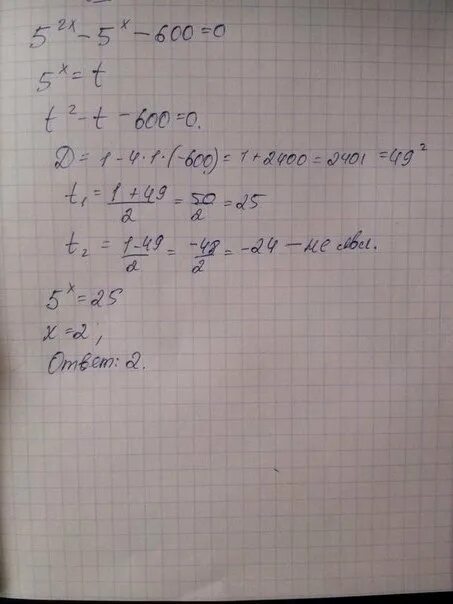 5^{2x} - 5^x - 600 = 0
5^x = t
t^2 - t - 600 = 0.
D = 1 - 4 · 1 · (-600) = 1 + 2400 = 2401 = 49^2
t_1 = \frac{1 + 49}{2} = \frac{50}{2} = 25
t_2 = \frac{1 - 49}{2} = \frac{-48}{2} = -24 — не явл.
5^x = 25
x = 2;
Ответ: 2.